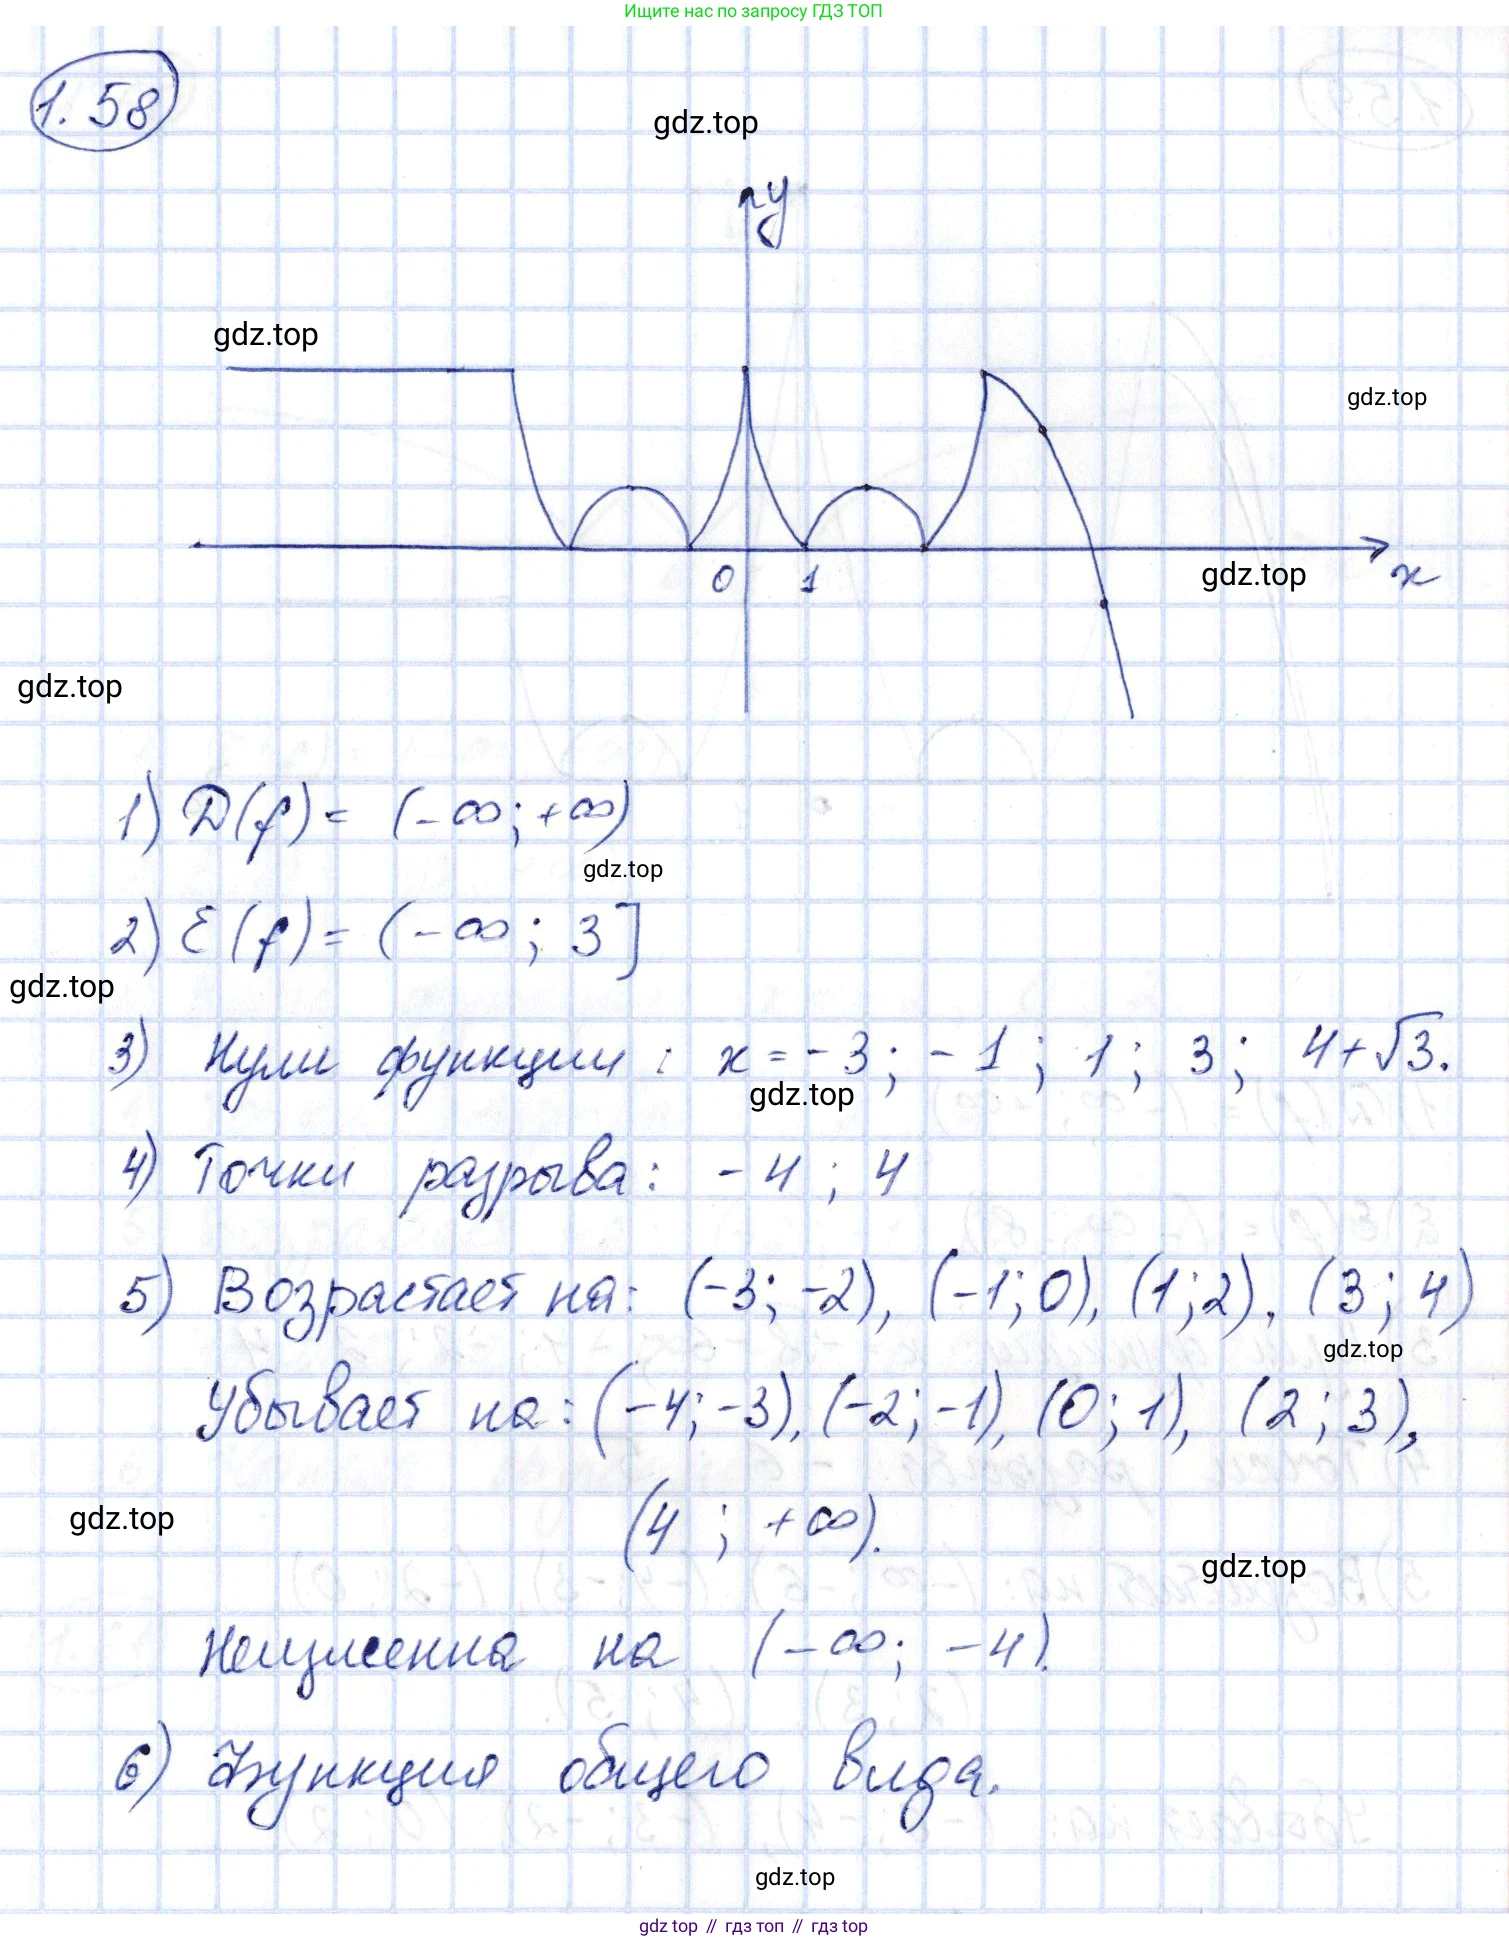 Ищите нас по запросу ГДЗ ТОП
1.58
gdz.top
y
gdz.top
gdz.top
0 1
gdz.top
x
gdz.top
1) D(f) = (-∞; +∞)
gdz.top
2) E(f) = (-∞; 3]
gdz.top
3) Нули функции: x = -3; -1; 1; 3; 4+√3.
gdz.top
4) Точки разрыва: -4; 4
5) Возрастает на: (-3; -2), (-1; 0), (1; 2), (3; 4)
gdz.top
Убывает на: (-4; -3), (-2; -1), (0; 1), (2; 3),
(4; +∞).
gdz.top
gdz.top
Неизменна на (-∞; -4).
6) Функция общего вида.
gdz.top
gdz top // гдз топ // гдз top